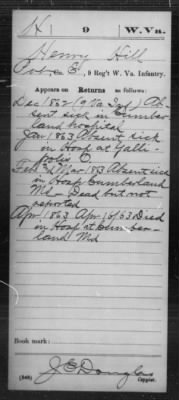 H 9 W. Va.
Henry Hill
Pvt., Co. E, 9 Reg't W. Va. Infantry.
Appears on Returns as follows:
Dec 1862 (9 Va Inf) Ab-
sent sick in Cumber-
land hospital
Jan 1863 Absent sick
in Hosp at Galli-
polis O.
Feb & Mar 1863 Absent sick
in Hosp Cumberland
Md - Dead but not
reported
Apr 1863 Apr /63 Died
in Hosp at Cumber-
land Md
Book mark:
J E Douglas
(546) Copyist.